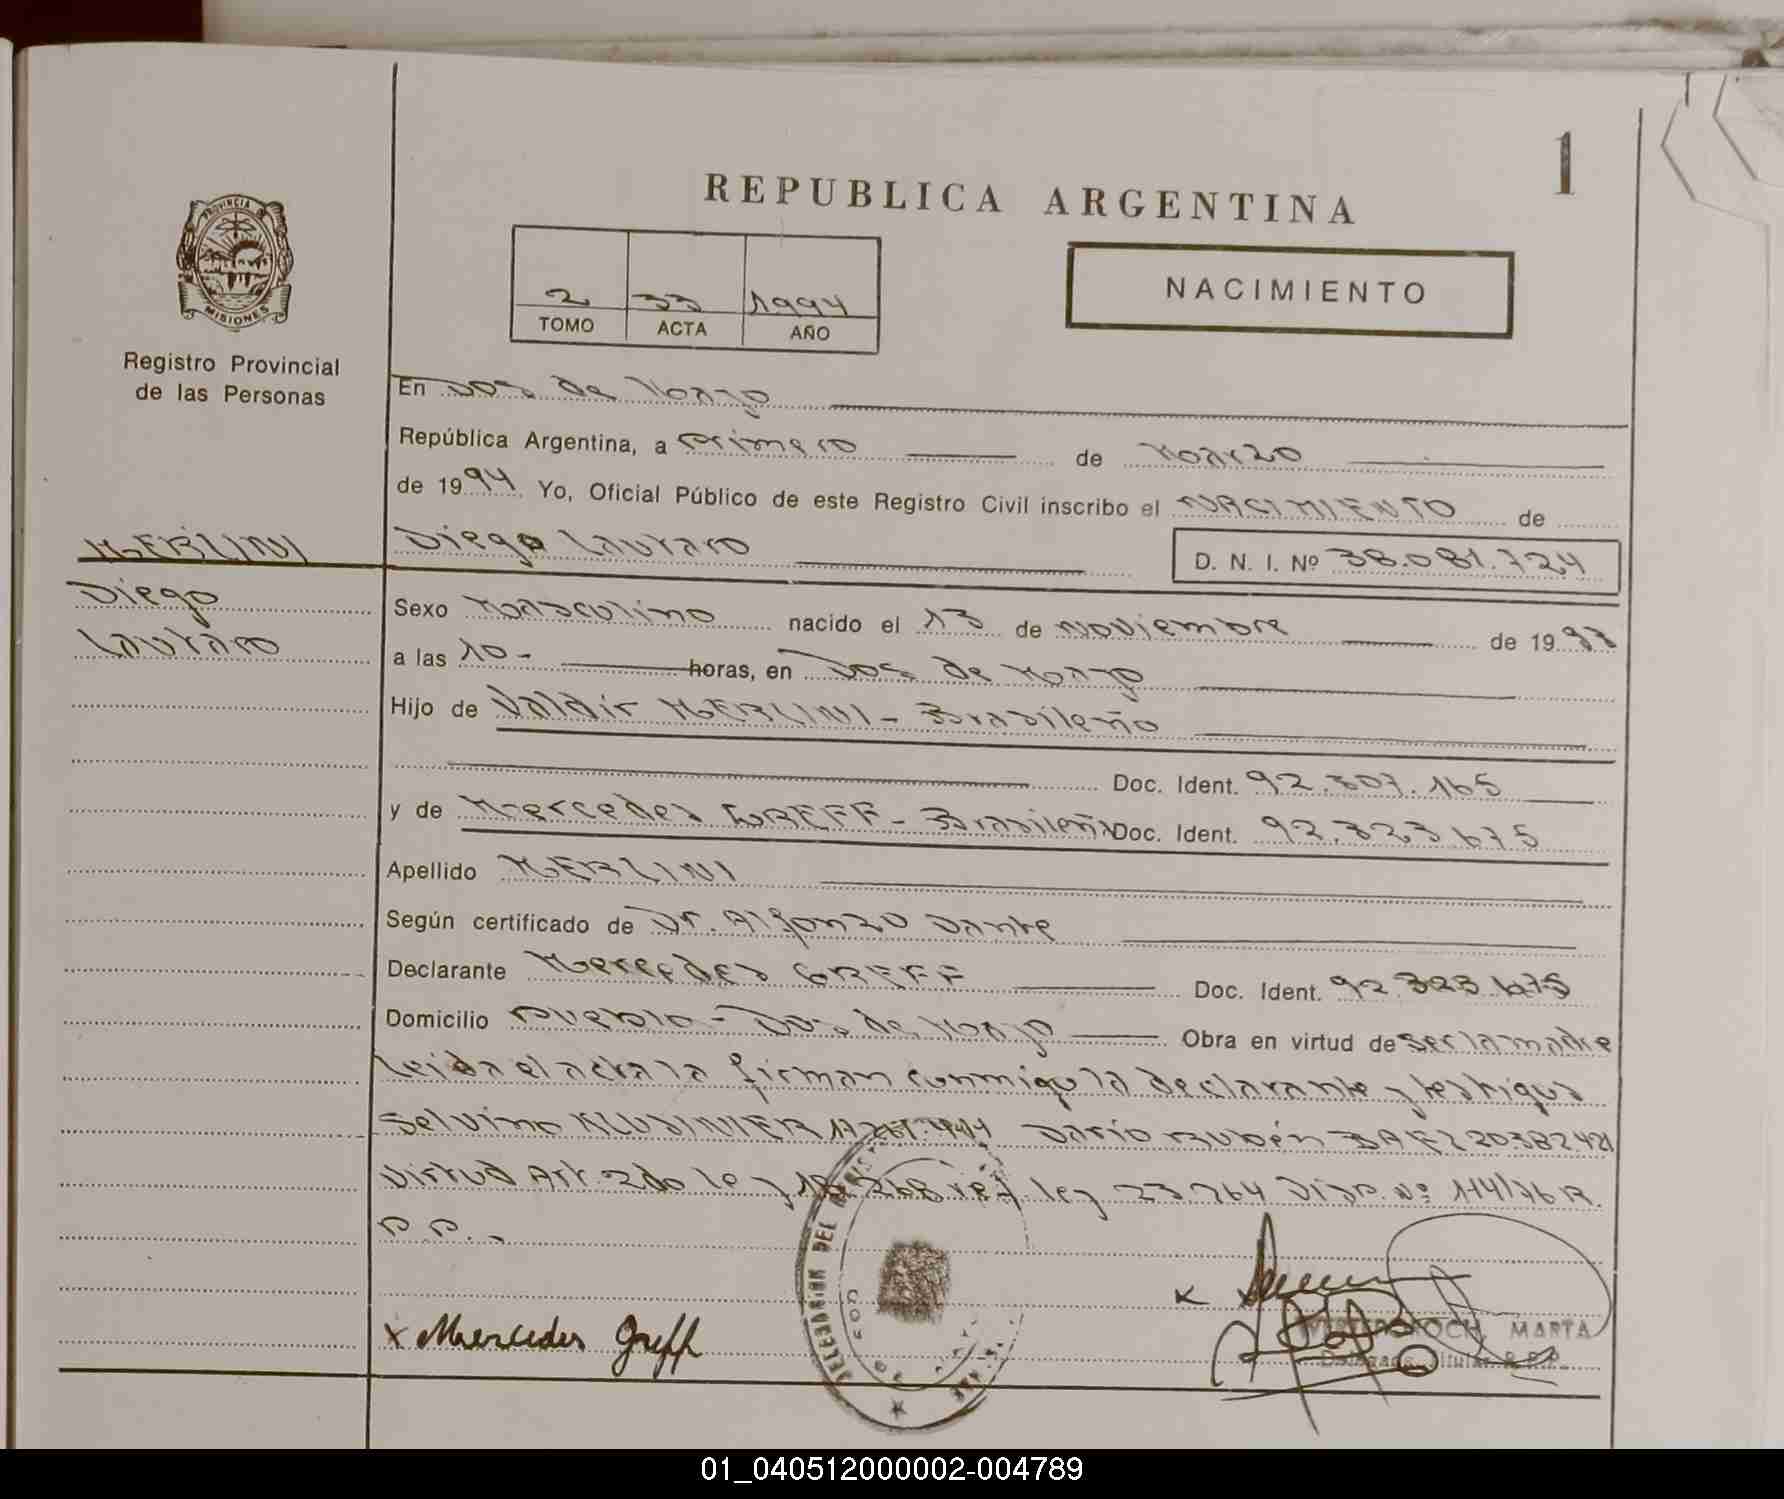 1
REPUBLICA ARGENTINA
PROVINCIA DE
MISIONES
2 33 1994
TOMO ACTA AÑO
NACIMIENTO
Registro Provincial
de las Personas
En Dos de Mayo
República Argentina, a primero de Marzo
de 1994 Yo, Oficial Público de este Registro Civil inscribo el NACIMIENTO de
MERLINI
Diego
Lautaro
Diego Lautaro D. N. I. Nº 38.081.724
Sexo Masculino nacido el 13 de Noviembre de 1993
a las 10- horas, en Dos de Mayo
Hijo de Valdir MERLINI - Brasileño
Doc. Ident. 92.307.165
y de Mercedes GREFF - Brasileña Doc. Ident. 92.323.675
Apellido MERLINI
Según certificado de Dr. Alfonzo Dante
Declarante Mercedes GREFF Doc. Ident. 92.323.675
Domicilio Pueblo - Dos de Mayo Obra en virtud de ser la madre
Leida el acta la firman conmigo la declarante y testigos
Selvino Dario Rubén BAEZ 20.382.421
virtud Art. 2do ley 18.248 ley 23.264 Disp. Nº 114/76 R.
P.P.-
DELEGACION DEL
x Mercedes Greff
MARTA
Delegada Titular R.P.P.
01_040512000002-004789